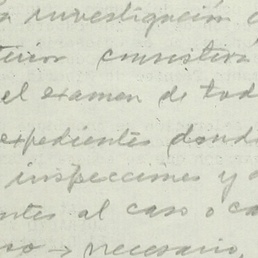 a investigación
terior consistirá
el examen de tod
expedientes dond
inspecciones y
ntes al caso o ca
so → necesario,